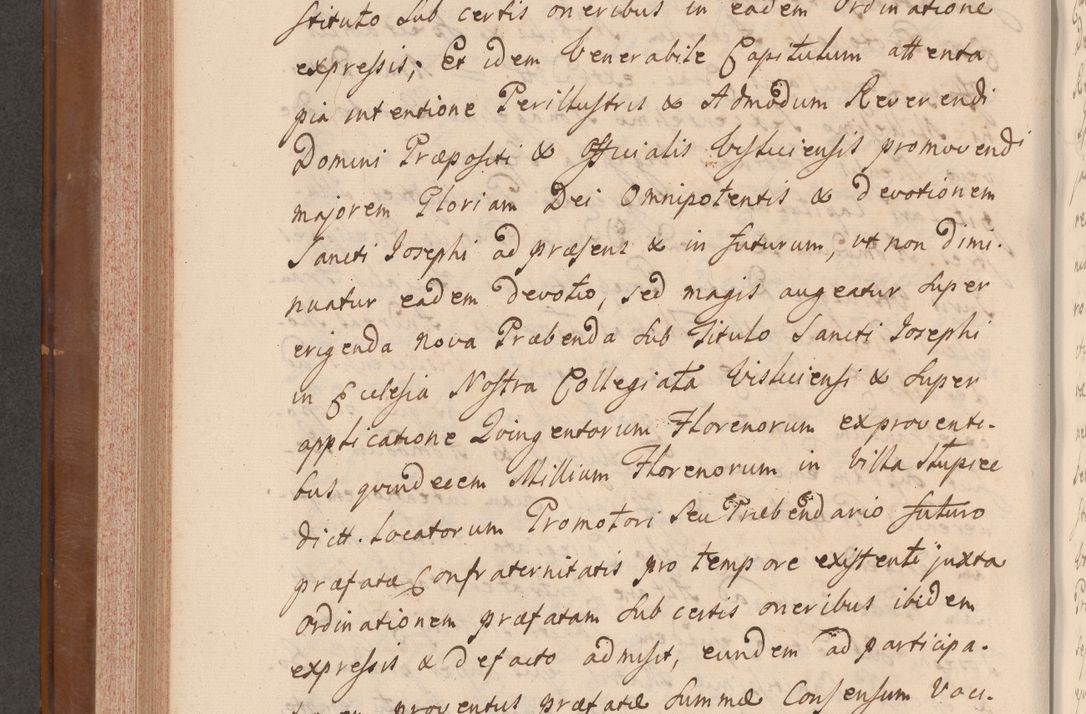 stituto sub certis oneribus in eadem Ordinatione
expressis; Et idem Venerabile Capitulum attenta
pia intentione Perillustris & Admodum Reverendi
Domini Præpositi & Officialis Visliciensis promovendi
majorem Gloriam Dei Omnipotentis & devotionem
Sancti Josephi ad præsens & in futurum, ut non dimi-
nuatur eadem devotio, sed magis augeatur super
erigenda nova Præbenda sub Titulo Sancti Josephi
in Ecclesia Nostra Collegiata Visliciensi & super
applicatione Quingentorum Florenorum ex proventi-
bus quindecem Millium Florenorum in Villa Stupiec
dictt. Locatorum Promotori seu Præbendario futuro
præfatæ Confraternitatis pro tempore existenti juxta
Ordinationem præfatam sub certis oneribus ibidem
expressis & de facto admisit, eundem ad participa-
proventus præfatæ summæ Consensum Vaci-